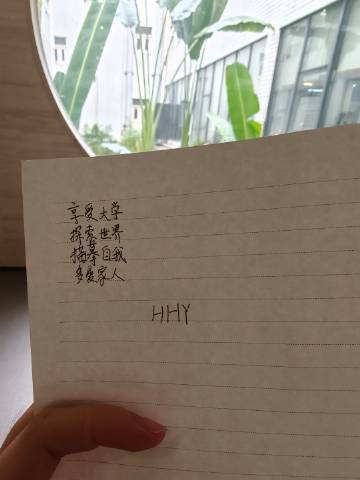 享爱大学
探索世界
描摹自我
多爱家人
HHY